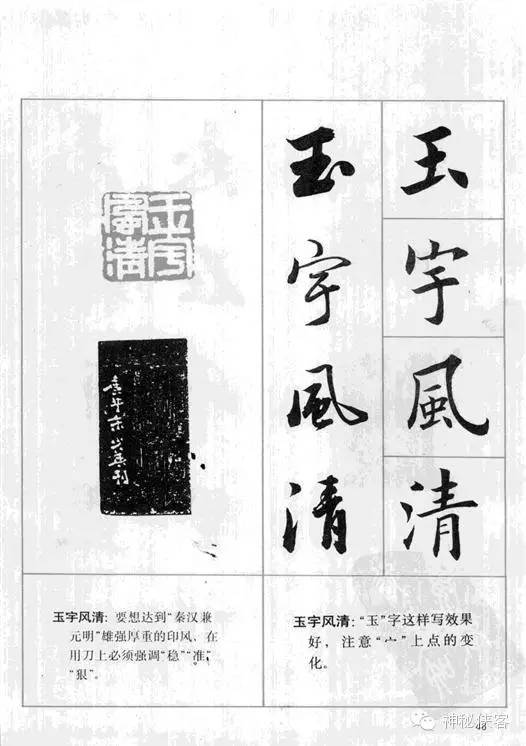 玉宇風清
玉宇風清
玉宇風清
玉宇风清: 要想达到“秦汉兼
元明”雄强厚重的印风、在
用刀上必须强调“稳”“准”,
“狠”。
玉宇风清: “玉”字这样写效果
好，注意“宀”上点的变
化。
48
神秘侠客